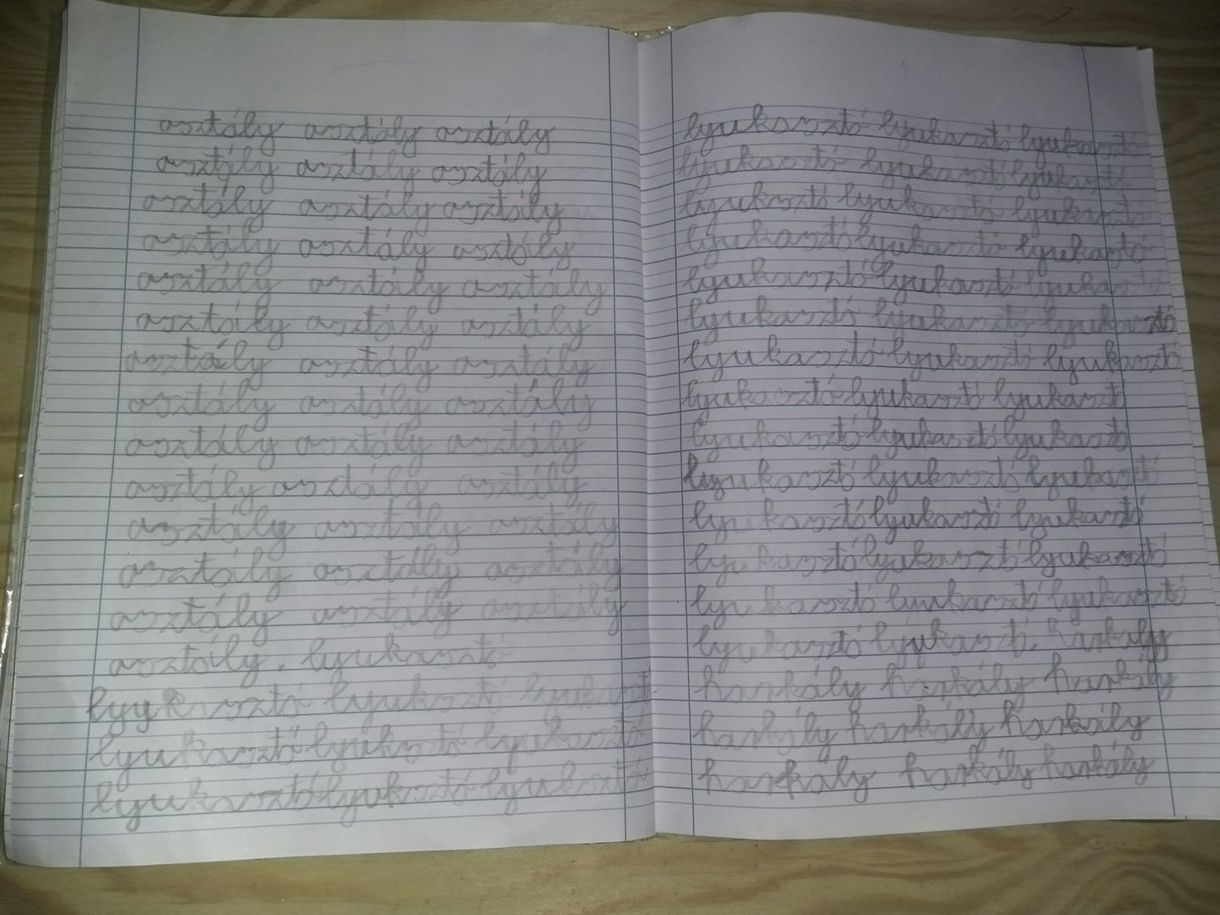 asztály asztály asztály
asztály asztály asztály
asztály asztály asztály
asztály asztály asztály
asztály asztály asztály
asztály asztály asztály
asztály asztály asztály
asztály asztály asztály
asztály asztály asztály
asztály asztály asztály
asztály asztály asztály
asztály asztály asztály
asztály asztály asztály
asztály. lyukasztó
lyukasztó lyukasztó
lyukasztó lyuksztó lyukasztó
lyukasztó lyuksztó lyuksztó
lyukasztó lyukasztó lyukasztó
lyukasztó lyukasztó lyukasztó
lyukasztó lyukasztó lyukasztó
lyukasztó lyukasztó lyukasztó
lyukasztó lyukasztó lyukasztó
lyukasztó lyukasztó lyukasztó
lyukasztó lyukasztó lyukasztó
lyukasztó lyukasztó lyukaszt
lyukasztó lyukasztó lyukaszt
lyukasztó lyukasztó lyukaszt
lyukasztó lyukasztó lyukasztó
lyukasztó lyukasztó lyukasztó
lyukasztó lyukasztó lyukasztó
lyukasztó lyukasztó. harkály
harkály harkály harkály
harkály harkály harkály
harkály harkály harkály